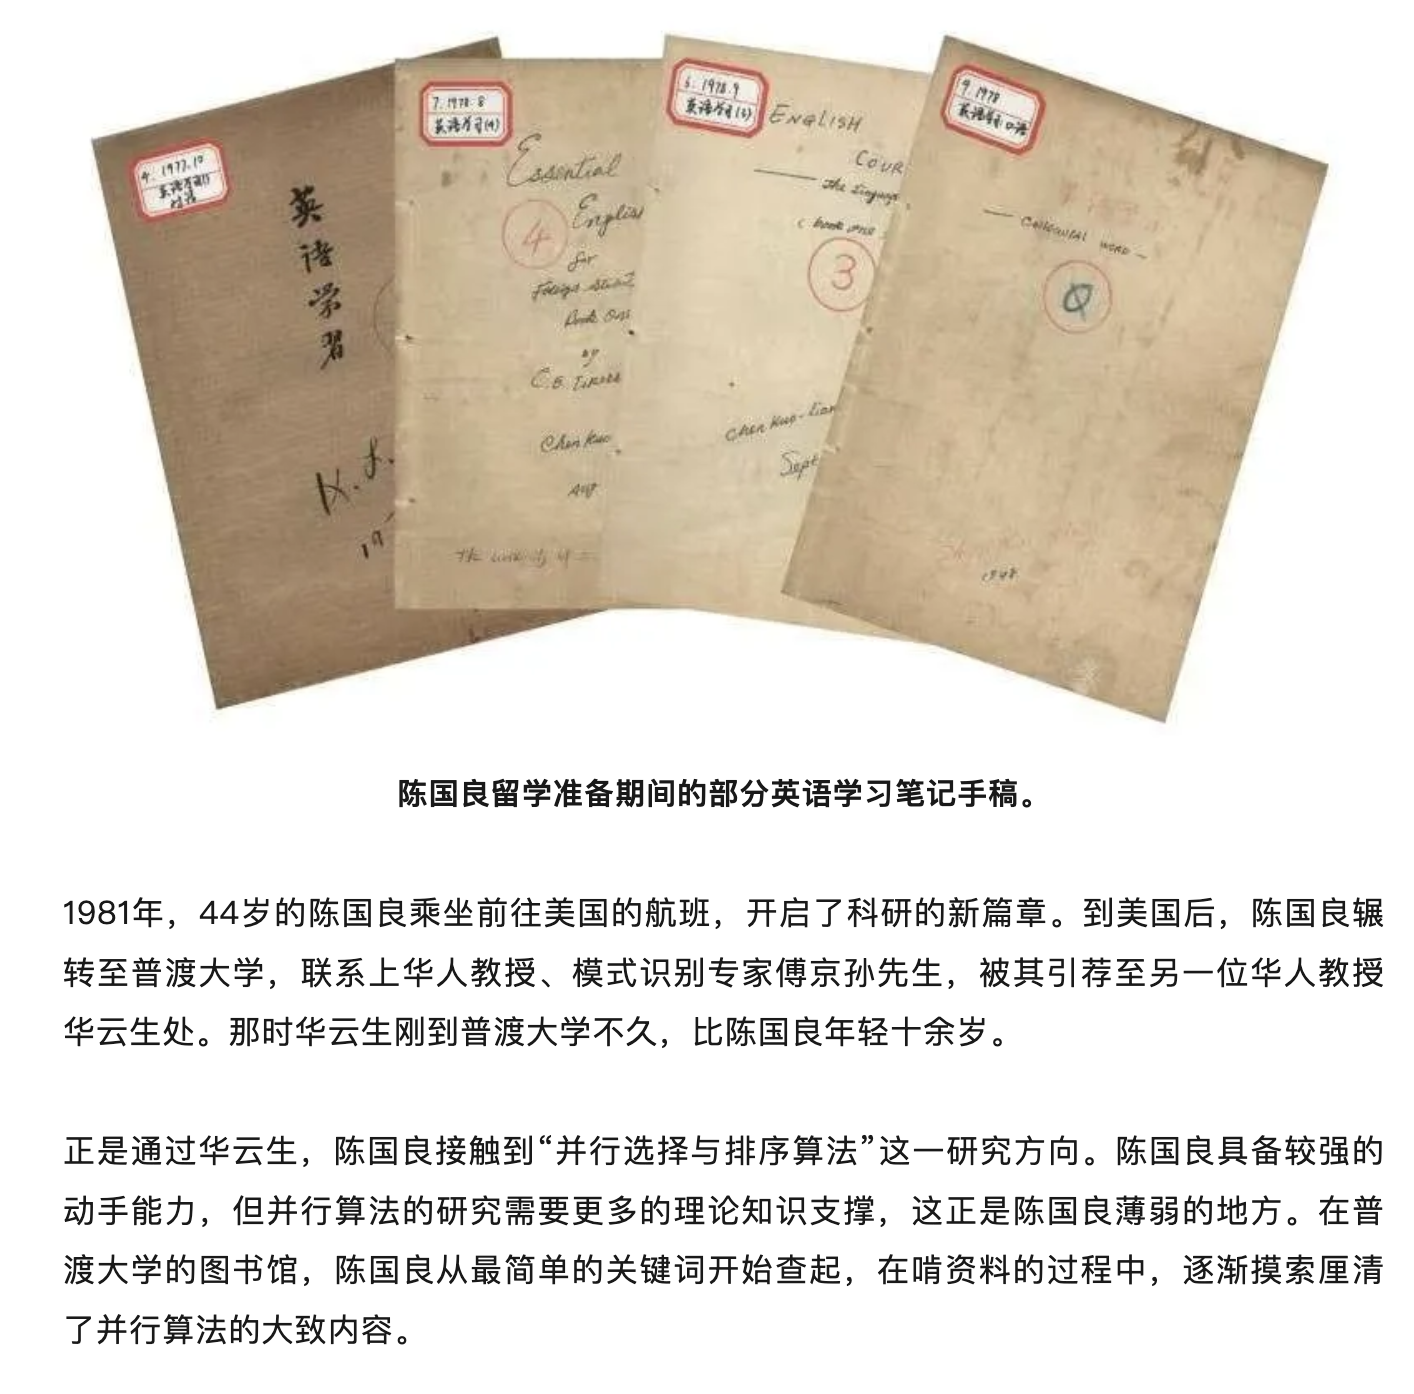 4. 1977.10
英语学习
英语学習
K. L.
7. 1978.8
英语学习(4)
Essential
English
for
Foreign
Book One
by
C.E.
Chen Kuo
Aug
4
1978.9
英语学习(3)
ENGLISH
COUR
the
( book one
3
Chen Kuo-Lian
Sept
9. 1978
英语学习口语
WORD
陈国良留学准备期间的部分英语学习笔记手稿。
1981年，44岁的陈国良乘坐前往美国的航班，开启了科研的新篇章。到美国后，陈国良辗
转至普渡大学，联系上华人教授、模式识别专家傅京孙先生，被其引荐至另一位华人教授
华云生处。那时华云生刚到普渡大学不久，比陈国良年轻十余岁。
正是通过华云生，陈国良接触到“并行选择与排序算法”这一研究方向。陈国良具备较强的
动手能力，但并行算法的研究需要更多的理论知识支撑，这正是陈国良薄弱的地方。在普
渡大学的图书馆，陈国良从最简单的关键词开始查起，在啃资料的过程中，逐渐摸索厘清
了并行算法的大致内容。